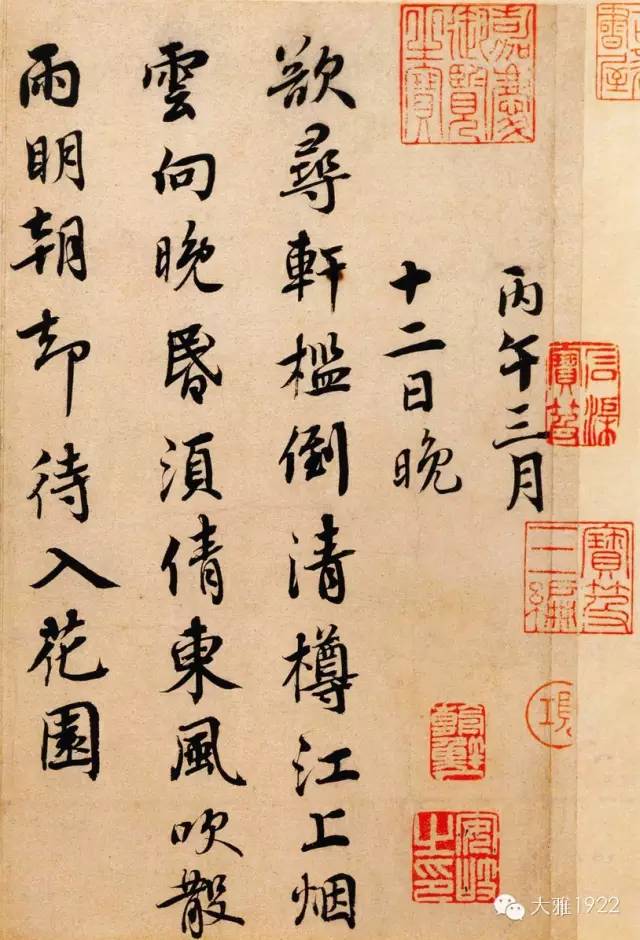 丙午三月
十二日晚
欲尋軒檻倒清樽江上烟
雲向晚昏須倩東風吹散
雨明朝却待入花園
嘉慶
御覽
之寶
石渠
寶笈
寶笈
三編
安岐
之印
大雅1922